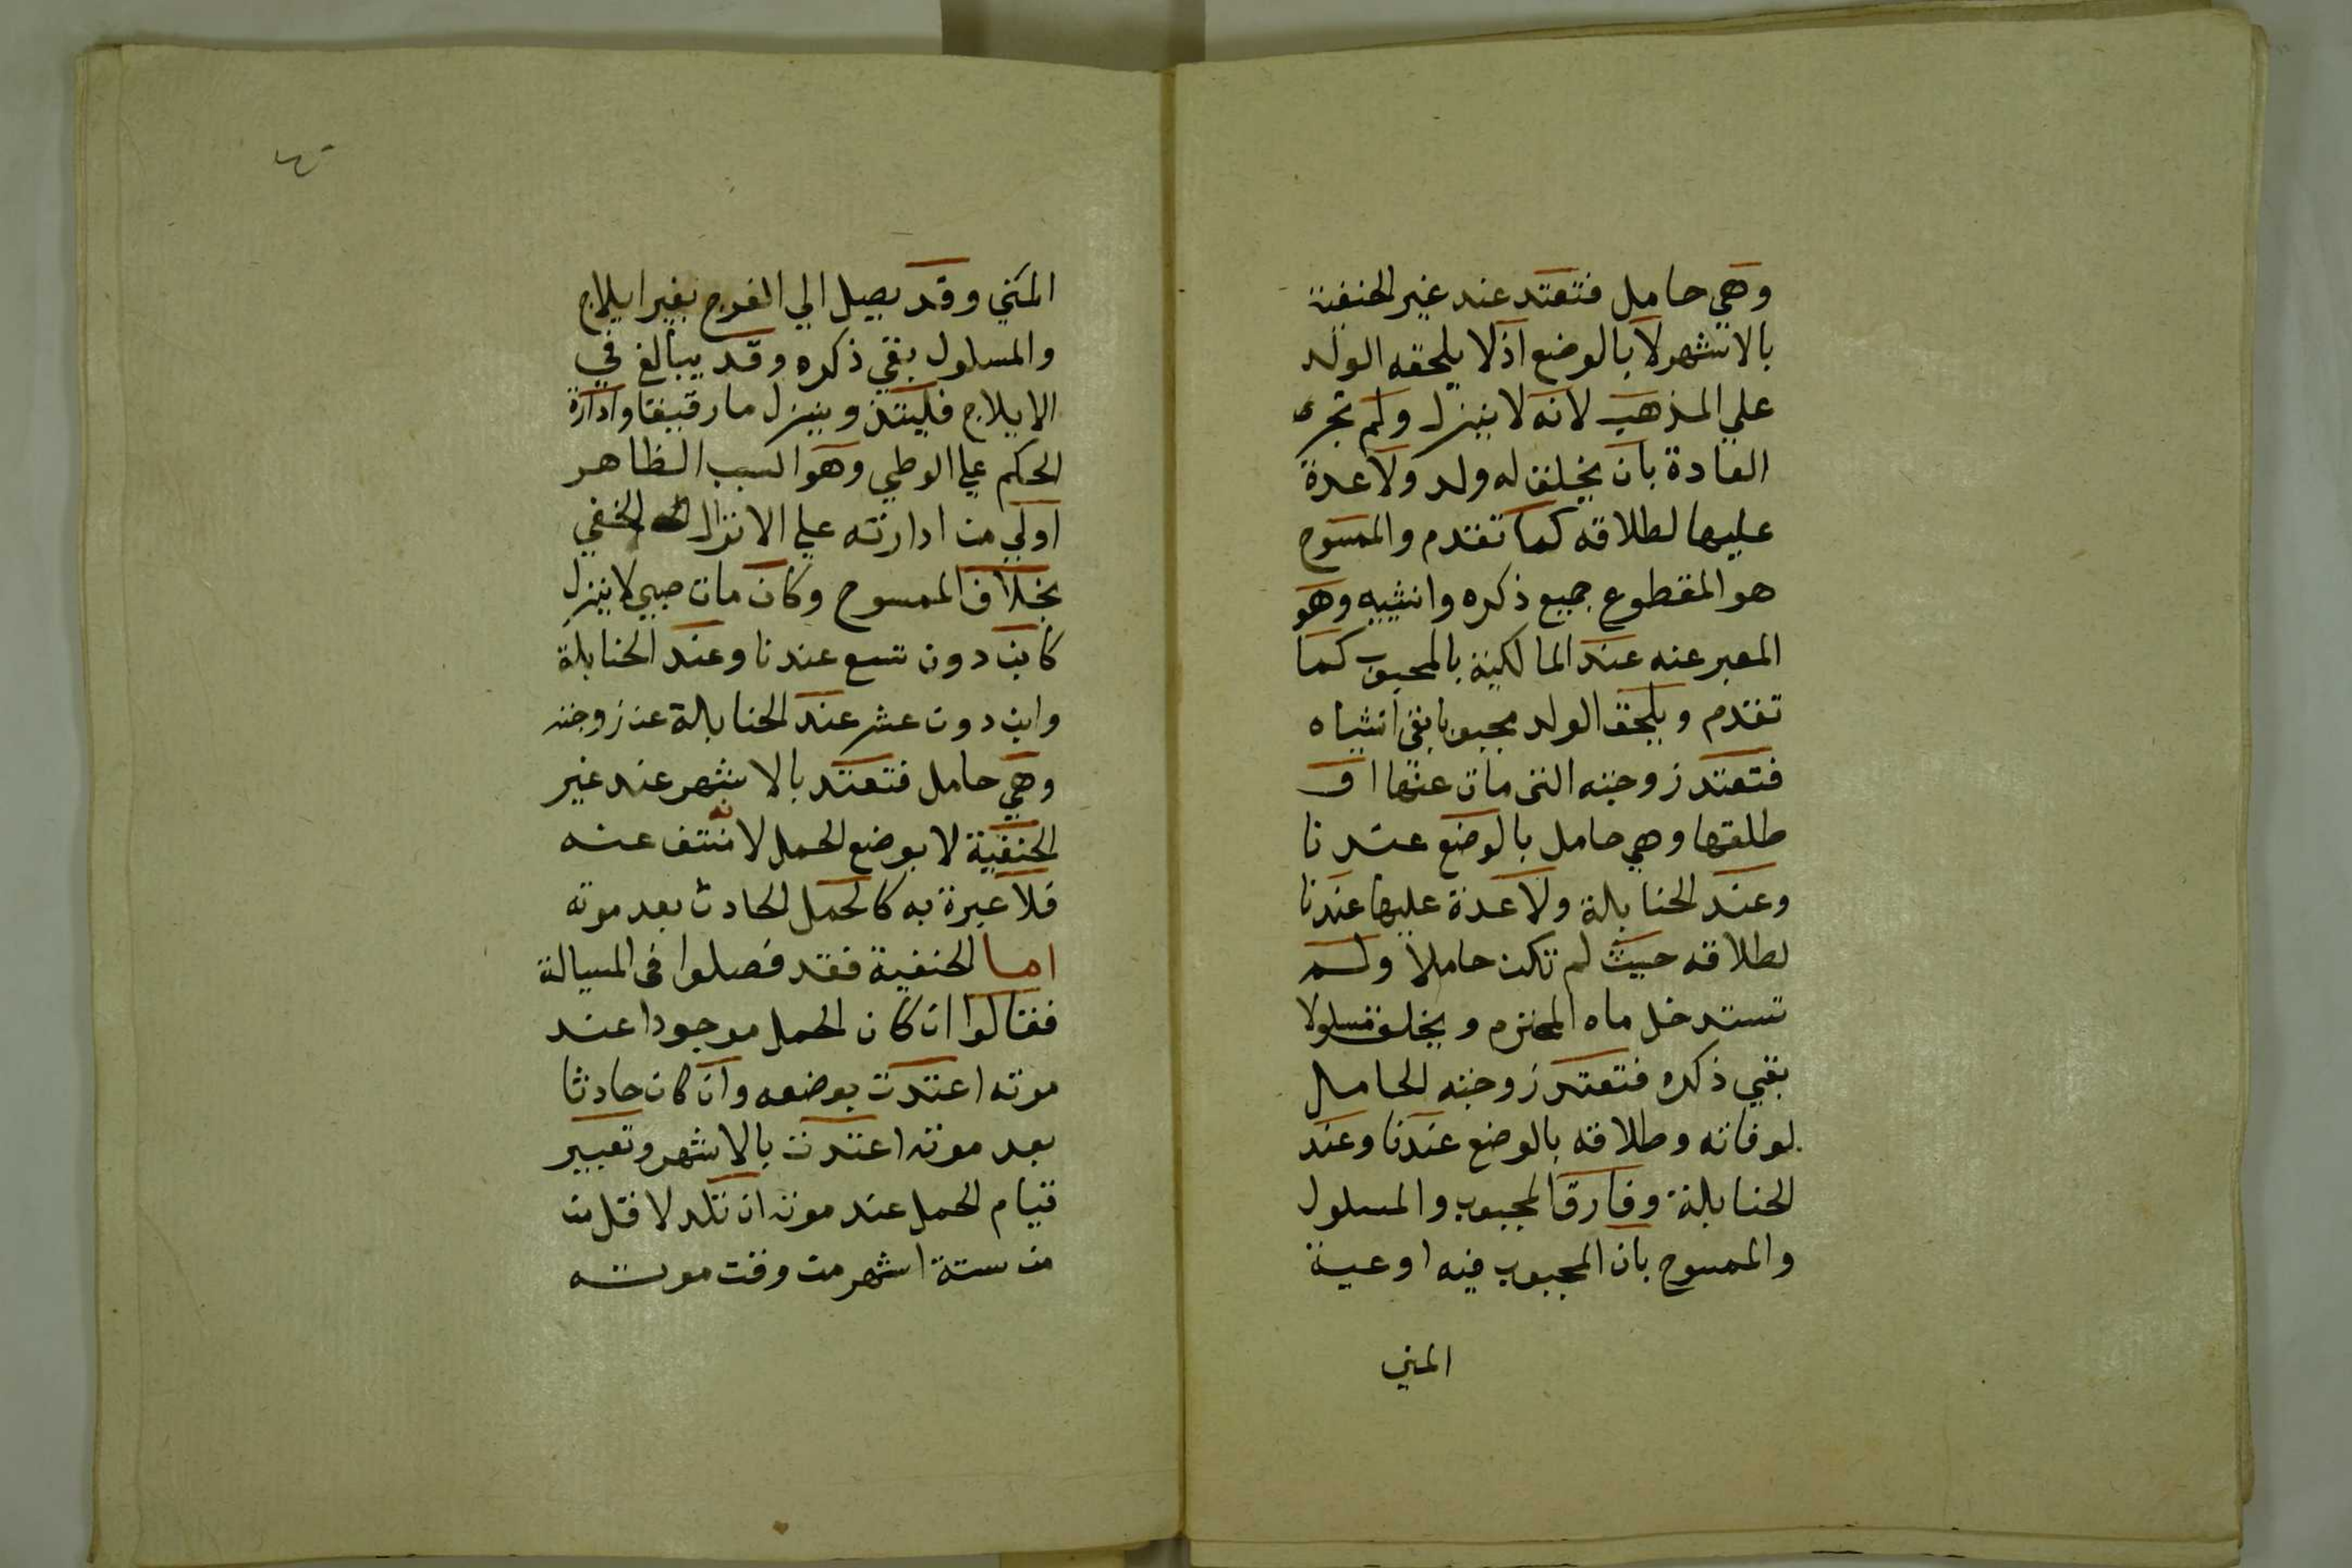 وهي حامل فتعتد عند غير الحنفية
بالاشهر لا بالوضع اذ لا يلحقه الولد
علي المذهب لانه لا ينزل ولم تجر
العادة بان يخلق له ولد ولا عدة
عليها لطلاقه كما تقدم والممسوح
هو المقطوع جميع ذكره وانثييه وهو
المعبر عنه عند المالكية بالمجبوب كما
تقدم ويلحق الولد مجبوبا بقي انثياه
فتعتد زوجته التي مات عنها او
طلقها وهي حامل بالوضع عندنا
وعند الحنابلة ولا عدة عليها عندنا
لطلاقه حيث لم تكن حاملا ولم
تستدخل ماه المحترم ويخلف مسلولا
بقي ذكره فتعتد زوجته الحامل
لوفاته وطلاقه بالوضع عندنا وعند
الحنابلة وفارق المجبوب والمسلول
والممسوح بان المجبوب فيه اوعية
المني
المني وقد يصل الي الفرج بغير ايلاج
والمسلول بقي ذكره وقد يبالغ في
الايلاج فيلتذ وينزل ما رقيقا وادارة
الحكم علي الوطي وهو السبب الظاهر
اولي من ادارته علي الانزال الخفي
بخلاف الممسوح وكان مات صبي لا ينزل
كابن دون تسع عندنا وعند الحنابلة
وابن دون عشر عند الحنابلة عن زوجته
وهي حامل فتعتد بالاشهر عند غير
الحنفية لا بوضع الحمل لانه منتف عنه
فلا عبرة به كالحمل الحادث بعد موته
اما الحنفية فقد فصلوا في المسالة
فقالوا ان كان الحمل موجودا عند
موته اعتدت بوضعه وان كان حادثا
بعد موته اعتدت بالاشهر وتعيير
قيام الحمل عند موته ان تلد لاقل من
من ستة اشهر من وقت موته